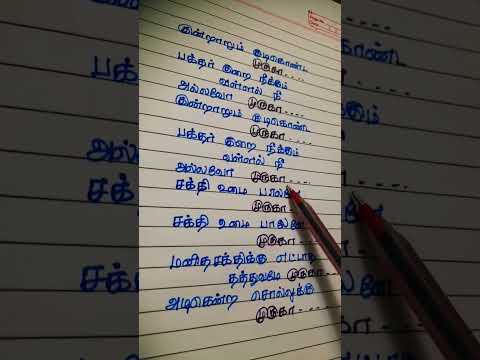 குன்றாறும் குடிகொண்ட
முருகா....
பக்தர் குறை நீக்கும்
வள்ளல் நீ
அல்லவோ முருகா....
குன்றாறும் குடிகொண்ட
முருகா....
பக்தர் குறை நீக்கும்
வள்ளல் நீ
அல்லவோ முருகா....
சக்தி உமை பாலனே
முருகா..
சக்தி உமை பாலனே
முருகா....
மனிதசக்திக்கு எட்டாத
தத்துவமே முருகா....
முருகா....